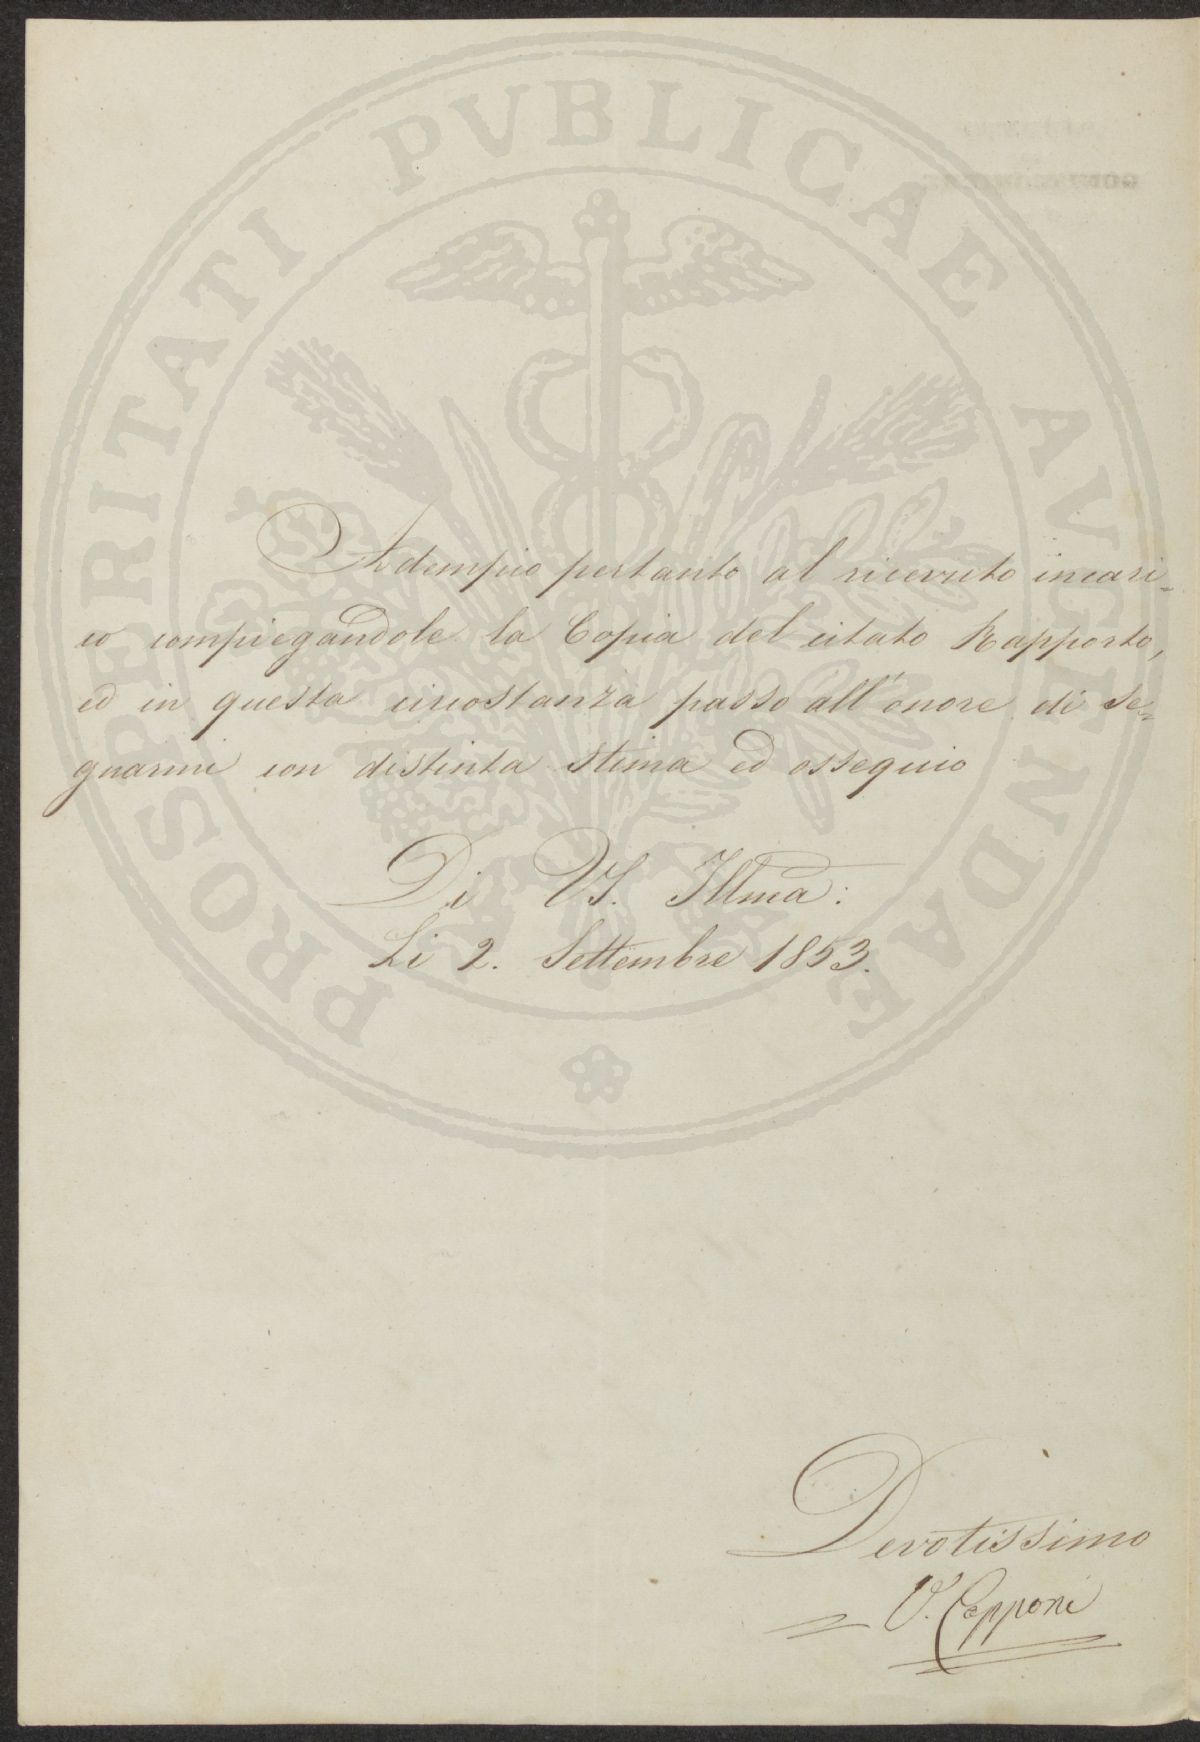 PROSPERITATI PVBLICAE AVGENDAE
Adempio pertanto al ricevuto incari=
co compiegandole la Copia del citato Rapporto,
ed in questa circostanza passo all'onore di se=
gnarmi con distinta stima ed ossequio
Di VS. Illma:
Li 2. Settembre 1853.
Devotissimo
V. Capponi